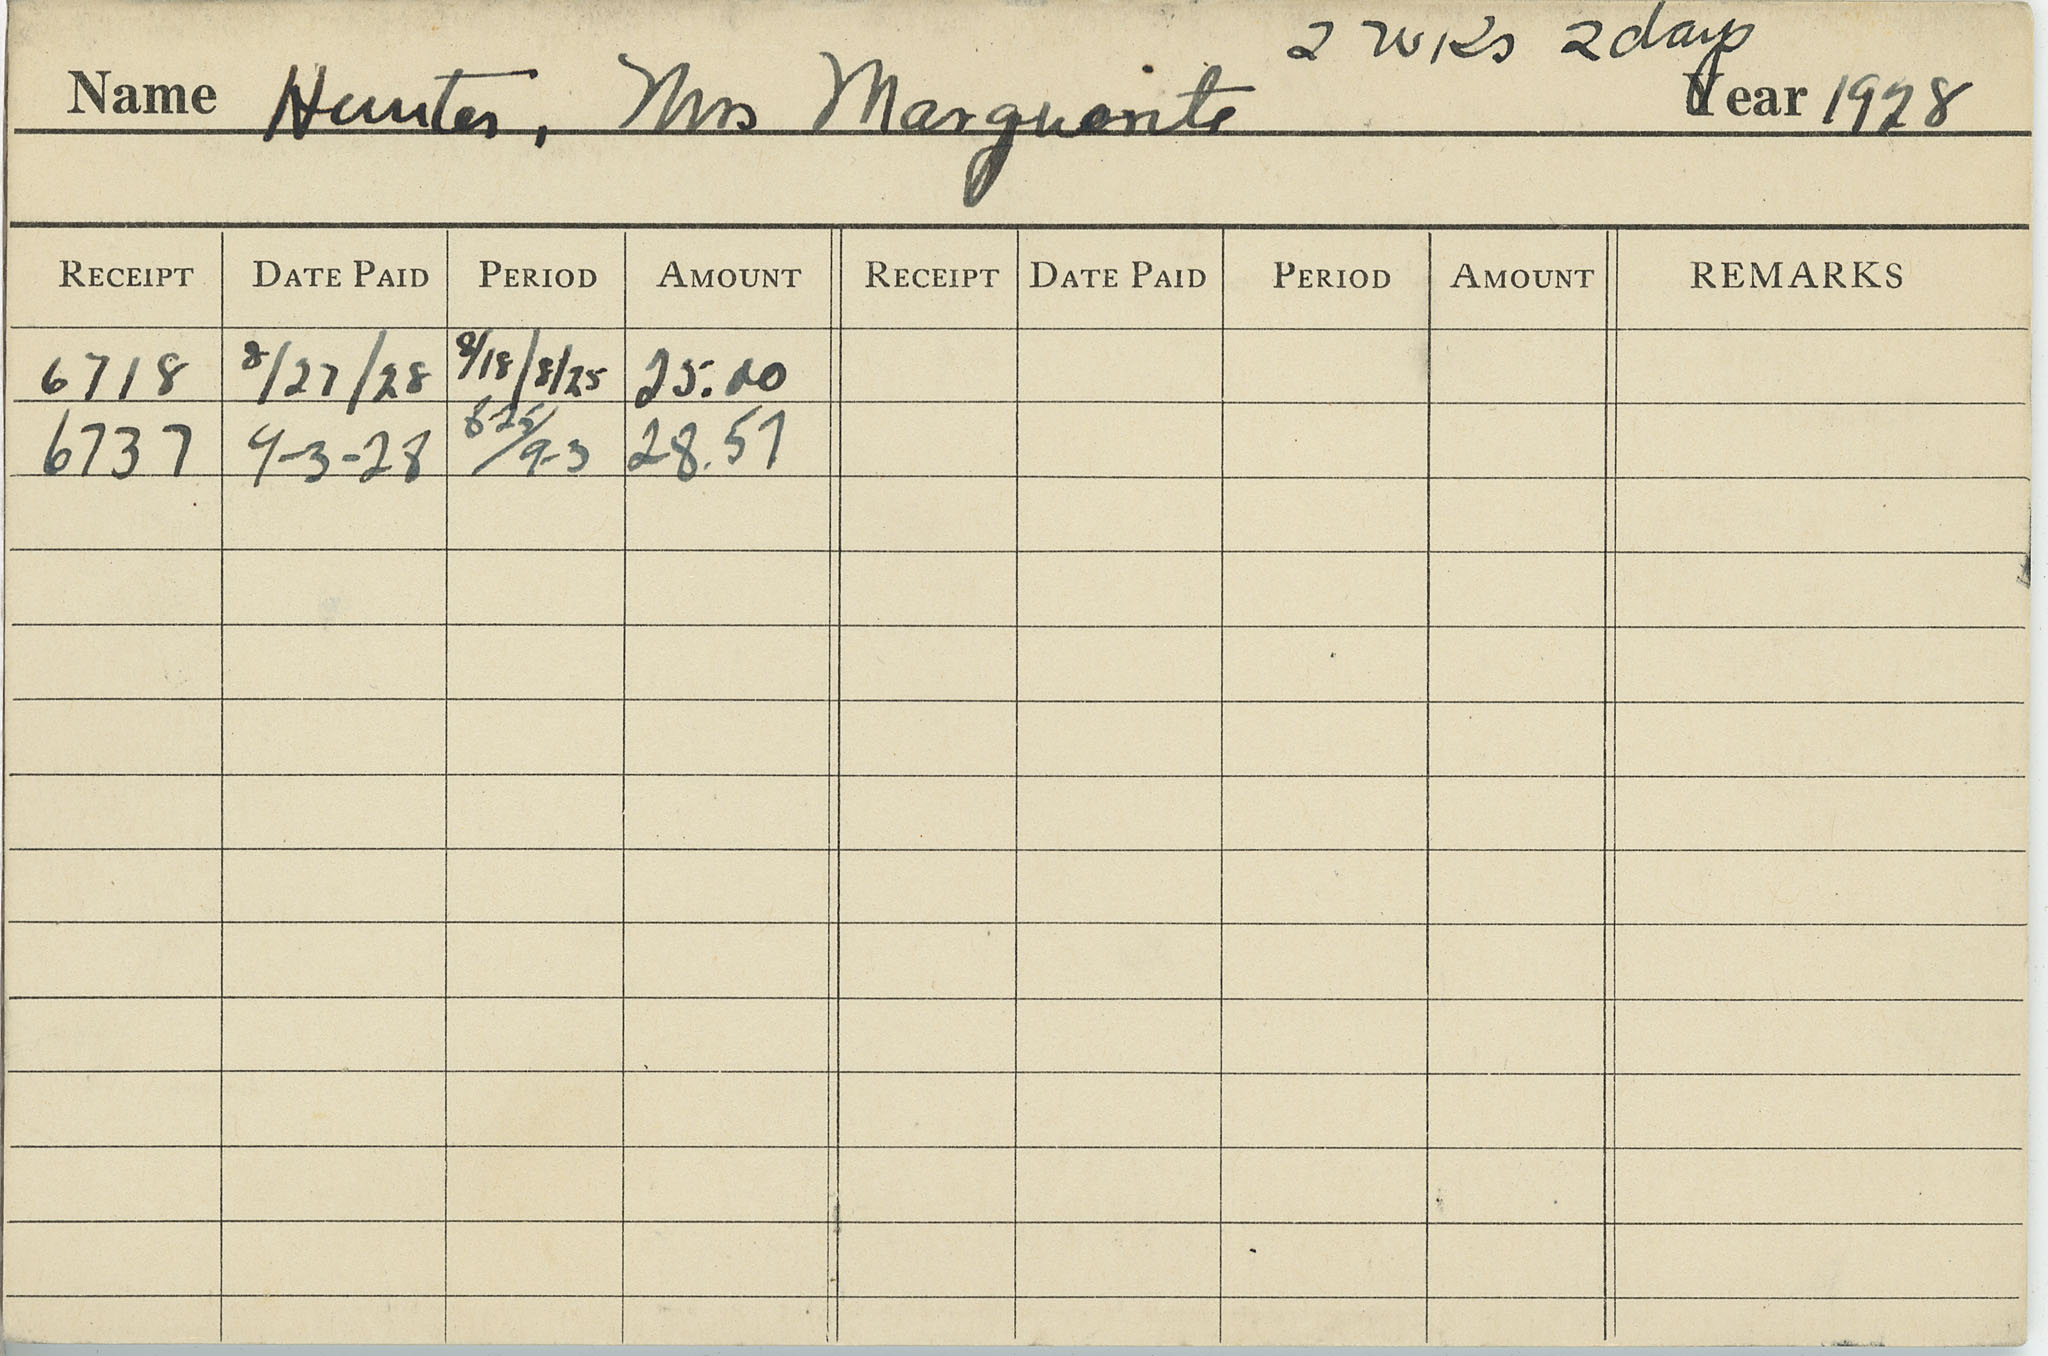 2 wks 2 days
Name Hunter, Mrs Marguerite Year 1928
RECEIPT DATE PAID PERIOD AMOUNT RECEIPT DATE PAID PERIOD AMOUNT REMARKS
6718 8/27/28 8/18/8/25 25.00
6737 9-3-28 8-25/9-3 28.57